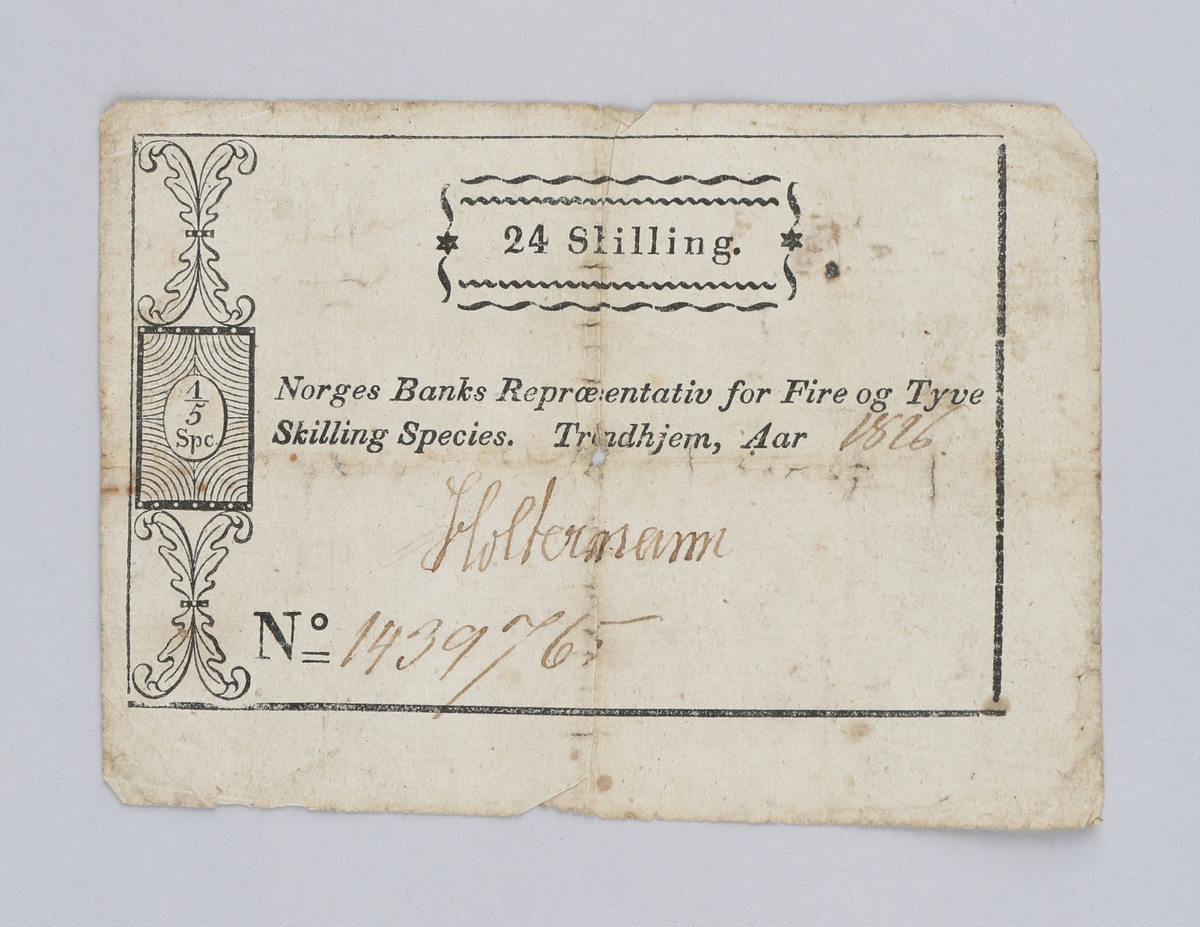 24 Skilling.
1/5
Spc.
Norges Banks Repræsentativ for Fire og Tyve
Skilling Species. Trondhjem, Aar 1826.
Holtermann
No 1439765